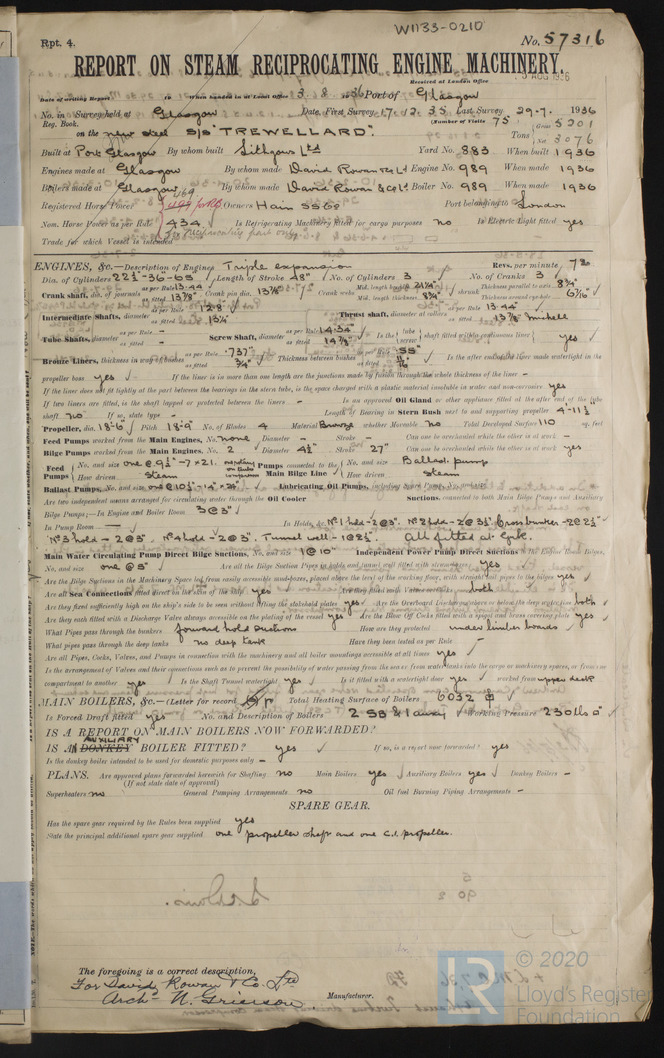 W1133-0210
Rpt. 4.
No. 57316
REPORT ON STEAM RECIPROCATING ENGINE MACHINERY.
Received at London Office
Date of writing Report 19 When handed in at Local Office 3. 8. 1936 Port of Glasgow
No. in Survey held at Glasgow Date, First Survey 17. 12. 35 Last Survey 29-7. 1936
Reg. Book. (Number of Visits 75
on the new steel S/S "TREWELLARD". Tons Gross 5201 Net 3076
Built at Port Glasgow By whom built Lithgows Ltd Yard No. 883 When built 1936
Engines made at Glasgow By whom made David Rowan & Co Ltd Engine No. 989 When made 1936
Boilers made at Glasgow By whom made David Rowan & Co Ltd Boiler No. 989 When made 1936
Registered Horse Power Owners Hain SS Co Port belonging to London
Nom. Horse Power as per Rule 434 Is Refrigerating Machinery fitted for cargo purposes no Is Electric Light fitted yes
Trade for which Vessel is intended
ENGINES, &c.—Description of Engines Triple expansion Revs. per minute
Dia. of Cylinders 22½"-36-65 Length of Stroke 48" No. of Cylinders 3 No. of Cranks 3
Crank shaft, dia. of journals as per Rule 13.44 as fitted 13⅞" Crank pin dia. 13⅞" Crank webs Mid. length breadth 21¼" Mid. length thickness 8¾" shrunk Thickness parallel to axis 8¾" Thickness around eye-hole 6 7/16"
Intermediate Shafts, diameter as per Rule 12.8 as fitted 13¼" Thrust shaft, diameter at collars as per Rule 13.44 as fitted 13⅞" Michell
Tube Shafts, diameter as per Rule – as fitted – Screw Shaft, diameter as per Rule 14.34 as fitted 14⅞" Is the tube screw shaft fitted with a continuous liner yes
Bronze Liners, thickness in way of bushes as per Rule .737" as fitted ¾" Thickness between bushes as per Rule .55" as fitted Is the after end of the liner made watertight in the
propeller boss yes If the liner is in more than one length are the junctions made by fusion through the whole thickness of the liner –
If the liner does not fit tightly at the part between the bearings in the stern tube, is the space charged with a plastic material insoluble in water and non-corrosive yes
If two liners are fitted, is the shaft lapped or protected between the liners – Is an approved Oil Gland or other appliance fitted at the after end of the tube
shaft no If so, state type – Length of Bearing in Stern Bush next to and supporting propeller 4'-11½"
Propeller, dia. 18'-6" Pitch 18'-9" No. of Blades 4 Material Bronze whether Moveable no Total Developed Surface 110 sq. feet
Feed Pumps worked from the Main Engines, No. none Diameter – Stroke – Can one be overhauled while the other is at work –
Bilge Pumps worked from the Main Engines, No. 2 Diameter 4½" Stroke 27" Can one be overhauled while the other is at work yes
Feed Pumps No. and size one @ 9½"-7"×21. How driven steam Pumps connected to the Main Bilge Line No. and size Ballast pump How driven steam
Ballast Pumps, No. and size one @ 10½"-14"×24" Lubricating Oil Pumps, including Spare Pump, No. and size
Are two independent means arranged for circulating water through the Oil Cooler Suctions, connected to both Main Bilge Pumps and Auxiliary
Bilge Pumps;—In Engine and Boiler Room 3@3"
In Pump Room — In Holds, &c. No1 hold-2@3". No2 hold-2@3½" Cross bunker-2@2½"
No3 hold-2@3". No4 hold-2@3". Tunnel well-1@2½". All fitted at Gnk.
Main Water Circulating Pump Direct Bilge Suctions, No. and size 1@10" Independent Power Pump Direct Suctions to the Engine Room Bilges,
No. and size one @ 5" Are all the Bilge Suction Pipes in holds and tunnel well fitted with strum-boxes yes
Are the Bilge Suctions in the Machinery Space led from easily accessible mud-boxes, placed above the level of the working floor, with straight tail pipes to the bilges yes
Are all Sea Connections fitted direct on the skin of the ship yes Are they fitted with Valves or Cocks both
Are they fixed sufficiently high on the ship's side to be seen without lifting the stokehold plates yes Are the Overboard Discharges above or below the deep water line both
Are they each fitted with a Discharge Valve always accessible on the plating of the vessel yes Are the Blow Off Cocks fitted with a spigot and brass covering plate yes
What Pipes pass through the bunkers forward hold suctions How are they protected under limber boards
What pipes pass through the deep tanks no deep tank Have they been tested as per Rule –
Are all Pipes, Cocks, Valves, and Pumps in connection with the machinery and all boiler mountings accessible at all times yes
Is the arrangement of Valves and their connections such as to prevent the possibility of water passing from the sea or from water tanks into the cargo or machinery spaces, or from one
compartment to another yes Is the Shaft Tunnel watertight yes Is it fitted with a watertight door yes worked from upper deck
MAIN BOILERS, &c.—(Letter for record Total Heating Surface of Boilers
Is Forced Draft fitted yes No. and Description of Boilers 2 SB & 1 auxy Working Pressure 230 lbs □"
IS A REPORT ON MAIN BOILERS NOW FORWARDED?
AUXILIARY
IS A DONKEY BOILER FITTED? yes If so, is a report now forwarded? yes
Is the donkey boiler intended to be used for domestic purposes only –
PLANS. Are approved plans forwarded herewith for Shafting no Main Boilers yes Auxiliary Boilers yes Donkey Boilers –
(If not state date of approval)
Superheaters no General Pumping Arrangements no Oil fuel Burning Piping Arrangements –
SPARE GEAR.
Has the spare gear required by the Rules been supplied yes
State the principal additional spare gear supplied one propeller shaft and one c.i. propeller.
The foregoing is a correct description,
For David Rowan & Co. Ltd
Archd N. Grierson. Manufacturer.
© 2020
LR
Lloyd's Register
Foundation